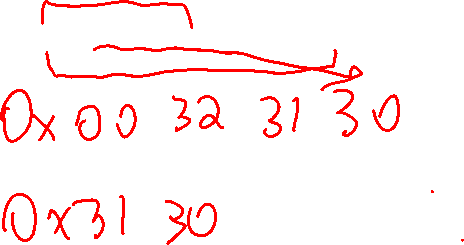 0x00 32 31 30
0x31 30